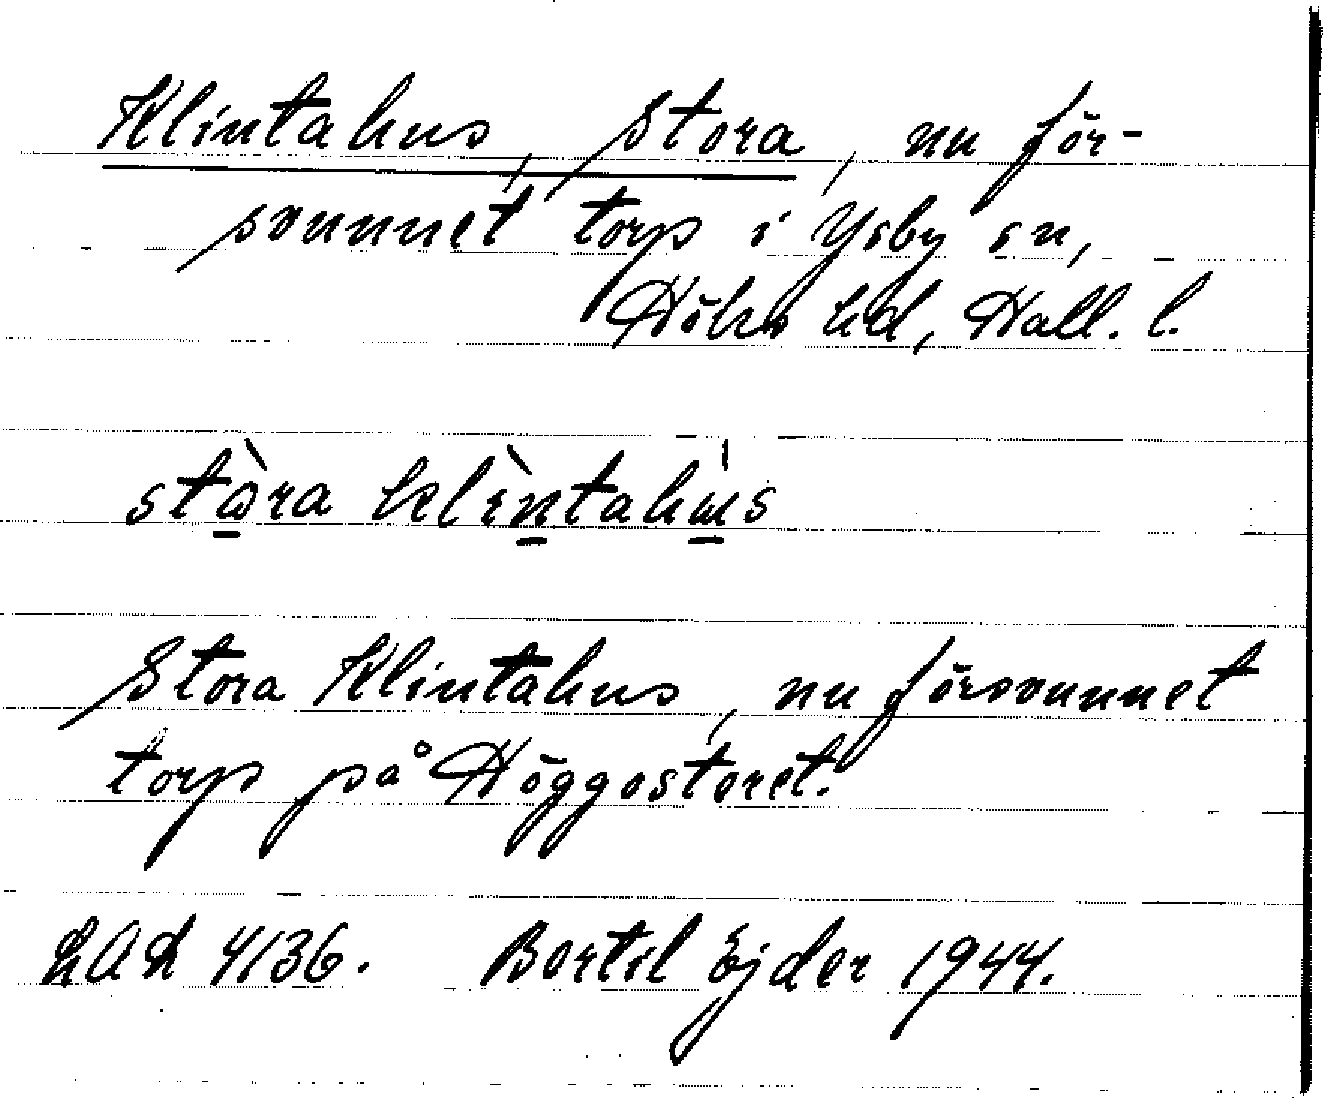 Klintahus, Stora, nu för-
svunnet torp i Ysby sn,
Höks hd, Hall. l.
stɷ̀ra klìntahúɯs
Stora Klintahus, nu försvunnet
torp på Höggostoret.
LAL 4136. Bertil Ejder 1944.